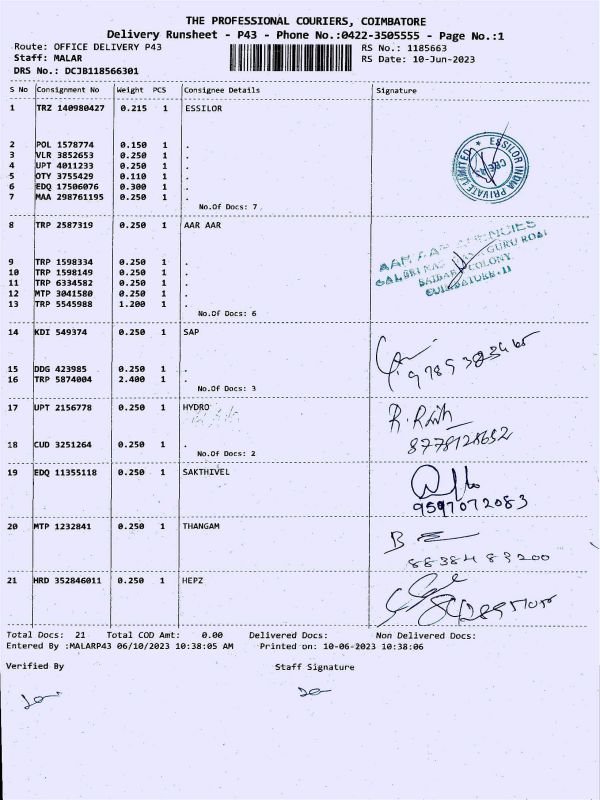 THE PROFESSIONAL COURIERS, COIMBATORE
Delivery Runsheet - P43 - Phone No.:0422-3505555 - Page No.:1
Route: OFFICE DELIVERY P43 RS No.: 1185663
Staff: MALAR RS Date: 10-Jun-2023
DRS No.: DCJB118566301
S No Consignment No Weight PCS Consignee Details Signature
1 TRZ 140980427 0.215 1 ESSILOR
2 POL 1578774 0.150 1 .
3 VLR 3852653 0.250 1 .
4 UPT 4011233 0.250 1 .
5 OTY 3755429 0.110 1 .
6 EDQ 17506076 0.300 1 .
7 MAA 298761195 0.250 1 .
ESSILOR INDIA PRIVATE LIMITED
No.Of Docs: 7
8 TRP 2587319 0.250 1 AAR AAR
9 TRP 1598334 0.250 1 .
10 TRP 1598149 0.250 1 .
11 TRP 6334582 0.250 1 .
12 MTP 3041580 0.250 1 .
13 TRP 5545988 1.200 1 .
AAR AAR AGENCIES
COLONY
No.Of Docs: 6
14 KDI 549374 0.250 1 SAP
15 DDG 423985 0.250 1 .
16 TRP 5874004 2.400 1 .
No.Of Docs: 3
17 UPT 2156778 0.250 1 HYDRO
18 CUD 3251264 0.250 1 .
8778128652
No.Of Docs: 2
19 EDQ 11355118 0.250 1 SAKTHIVEL
9597072083
20 MTP 1232841 0.250 1 THANGAM
8838483200
21 HRD 352846011 0.250 1 HEPZ
Total Docs: 21 Total COD Amt: 0.00 Delivered Docs: Non Delivered Docs:
Entered By :MALARP43 06/10/2023 10:38:05 AM Printed on: 10-06-2023 10:38:06
Verified By Staff Signature